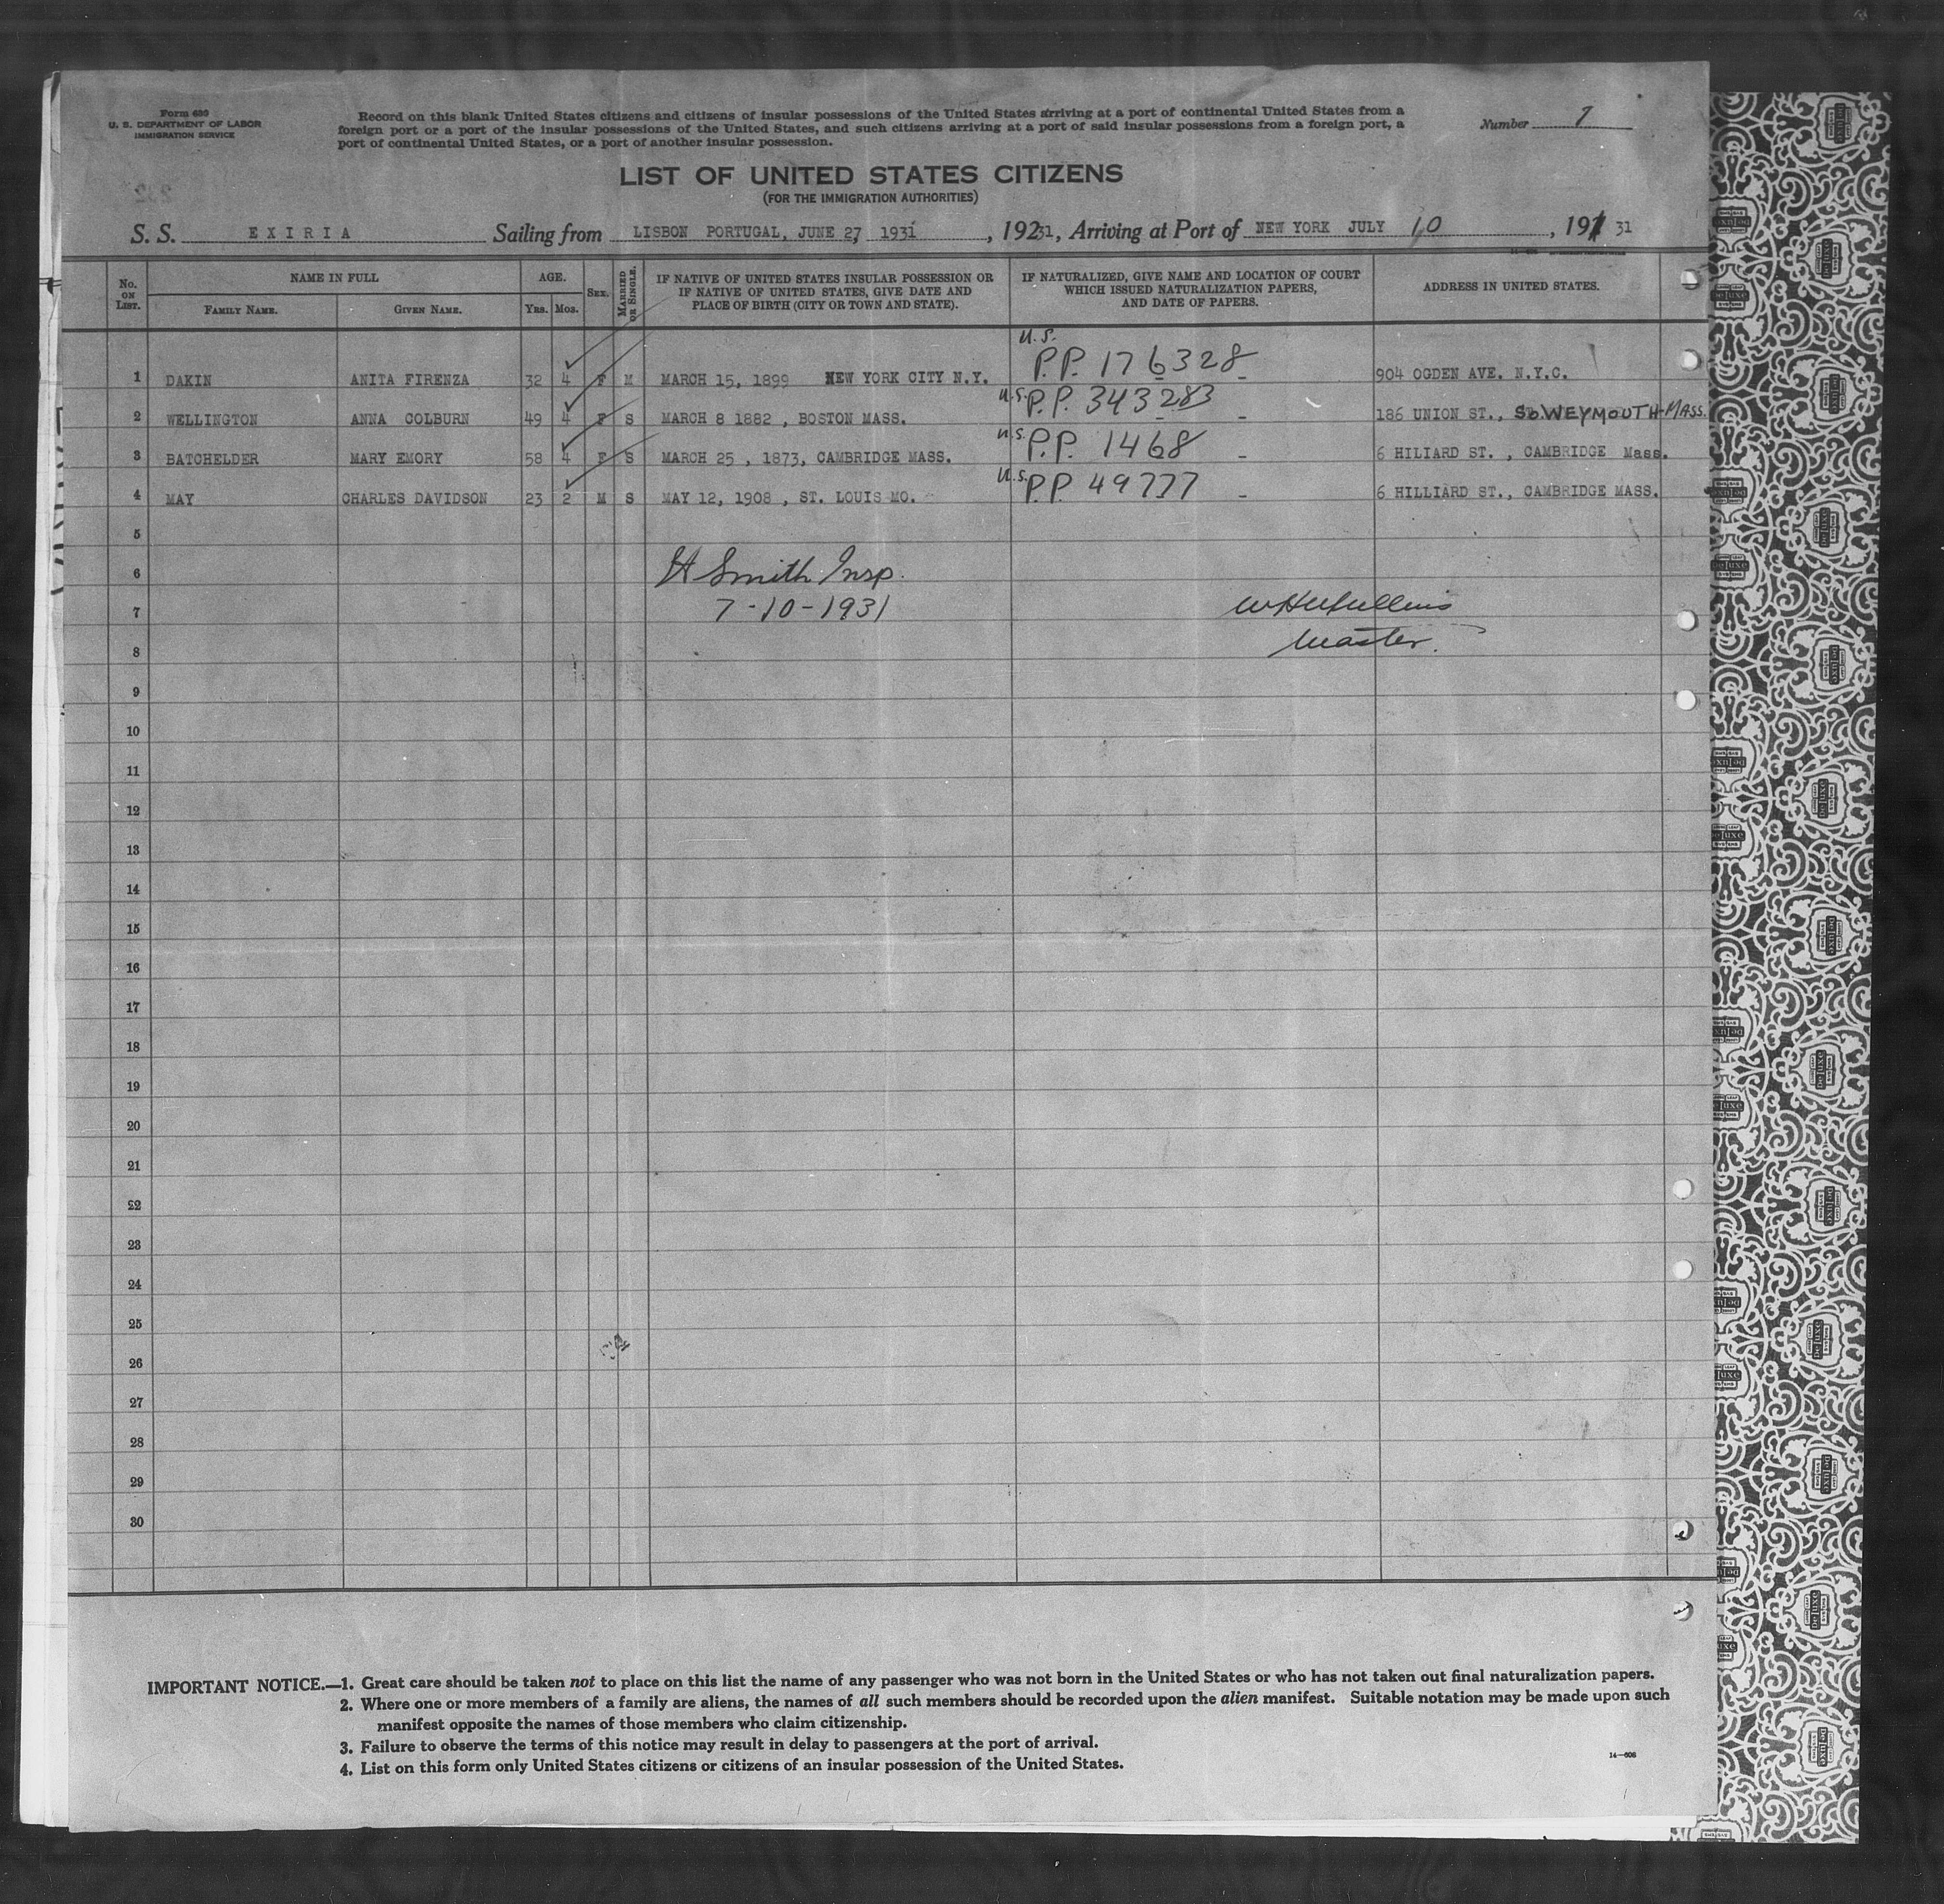 Form 630
U. S. DEPARTMENT OF LABOR
IMMIGRATION SERVICE
Record on this blank United States citizens and citizens of insular possessions of the United States arriving at a port of continental United States from a
foreign port or a port of the insular possessions of the United States, and such citizens arriving at a port of said insular possessions from a foreign port, a
port of continental United States, or a port of another insular possession.
Number
LIST OF UNITED STATES CITIZENS
(FOR THE IMMIGRATION AUTHORITIES)
S. S. EXIRIA Sailing from LISBON PORTUGAL, JUNE 27, 1931, 19231, Arriving at Port of NEW YORK JULY 10, 191 31
No. ON LIST. NAME IN FULL AGE. SEX. MARRIED OR SINGLE. IF NATIVE OF UNITED STATES INSULAR POSSESSION OR IF NATIVE OF UNITED STATES, GIVE DATE AND PLACE OF BIRTH (CITY OR TOWN AND STATE). IF NATURALIZED, GIVE NAME AND LOCATION OF COURT WHICH ISSUED NATURALIZATION PAPERS, AND DATE OF PAPERS. ADDRESS IN UNITED STATES.
FAMILY NAME. GIVEN NAME. YRS. MOS.
1 DAKIN ANITA FIRENZA 32 4 F M MARCH 15, 1899 NEW YORK CITY N.Y. U.S. P.P. 176328 - 904 OGDEN AVE. N.Y.C.
2 WELLINGTON ANNA COLBURN 49 4 F S MARCH 8 1882 , BOSTON MASS. U.S. P.P. 343283 - 186 UNION ST., So. WEYMOUTH-MASS.
3 BATCHELDER MARY EMORY 58 4 F S MARCH 25 , 1873, CAMBRIDGE MASS. U.S. P.P. 1468 - 6 HILIARD ST. , CAMBRIDGE Mass.
4 MAY CHARLES DAVIDSON 23 2 M S MAY 12, 1908 , ST. LOUIS MO. U.S. P.P. 49777 - 6 HILLIARD ST., CAMBRIDGE MASS.
5
6 H Smith Insp.
7 7-10-1931
8 Master.
9
10
11
12
13
14
15
16
17
18
19
20
21
22
23
24
25
26
27
28
29
30
IMPORTANT NOTICE.—1. Great care should be taken not to place on this list the name of any passenger who was not born in the United States or who has not taken out final naturalization papers.
2. Where one or more members of a family are aliens, the names of all such members should be recorded upon the alien manifest. Suitable notation may be made upon such
manifest opposite the names of those members who claim citizenship.
3. Failure to observe the terms of this notice may result in delay to passengers at the port of arrival.
4. List on this form only United States citizens or citizens of an insular possession of the United States.
14—606